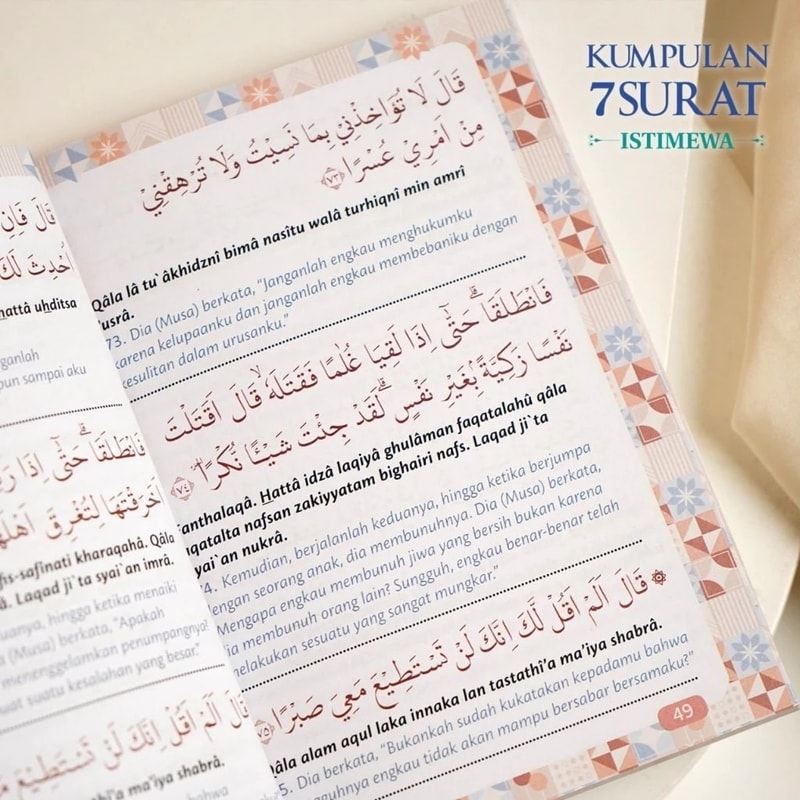 KUMPULAN
7SURAT
ISTIMEWA
قَالَ لَا تُؤَاخِذْنِيْ بِمَا نَسِيْتُ وَلَا تُرْهِقْنِيْ
مِنْ اَمْرِيْ عُسْرًا ﴿٧٣﴾
Qâla lâ tu`âkhidznî bimâ nasîtu walâ turhiqnî min amrî
'usrâ.
73. Dia (Musa) berkata, "Janganlah engkau menghukumku
karena kelupaanku dan janganlah engkau membebaniku dengan
kesulitan dalam urusanku."
فَانْطَلَقَا ۗ حَتّٰٓى اِذَا لَقِيَا غُلٰمًا فَقَتَلَهٗ ۙ قَالَ اَقَتَلْتَ
نَفْسًا زَكِيَّةً ۢ بِغَيْرِ نَفْسٍ ۗ لَقَدْ جِئْتَ شَيْـًٔا نُّكْرًا ﴿٧٤﴾
Fanthalaqâ. Hattâ idzâ laqiyâ ghulâman faqatalahû qâla
aqatalta nafsan zakiyyatam bighairi nafs. Laqad ji`ta
syai`an nukrâ.
74. Kemudian, berjalanlah keduanya, hingga ketika berjumpa
dengan seorang anak, dia membunuhnya. Dia (Musa) berkata,
"Mengapa engkau membunuh jiwa yang bersih bukan karena
dia membunuh orang lain? Sungguh, engkau benar-benar telah
melakukan sesuatu yang sangat mungkar."
۞ قَالَ اَلَمْ اَقُلْ لَّكَ اِنَّكَ لَنْ تَسْتَطِيْعَ مَعِيَ صَبْرًا ﴿٧٥﴾
Qâla alam aqul laka innaka lan tastathî'a ma'iya shabrâ.
75. Dia berkata, "Bukankah sudah kukatakan kepadamu bahwa
engkau tidak akan mampu bersabar bersamaku?"
49
قَالَ فَاِنِ
اُحْدِثَ لَكَ
hattâ uhditsa
janganlah
pun sampai aku
فَانْطَلَقَا ۗ حَتّٰٓى اِذَا
اَخَرَقْتَهَا لِتُغْرِقَ اَهْلَهَا
fis-safînati kharaqahâ. Qâla
Laqad ji`ta syai`an imrâ.
keduanya, hingga ketika menaiki
(Musa) berkata, "Apakah
menenggelamkan penumpangnya?
suatu kesalahan yang besar."
قَالَ اَلَمْ اَقُلْ اِنَّكَ لَنْ تَسْتَطِيْعَ
ma'iya shabrâ.
kukatakan bahwa